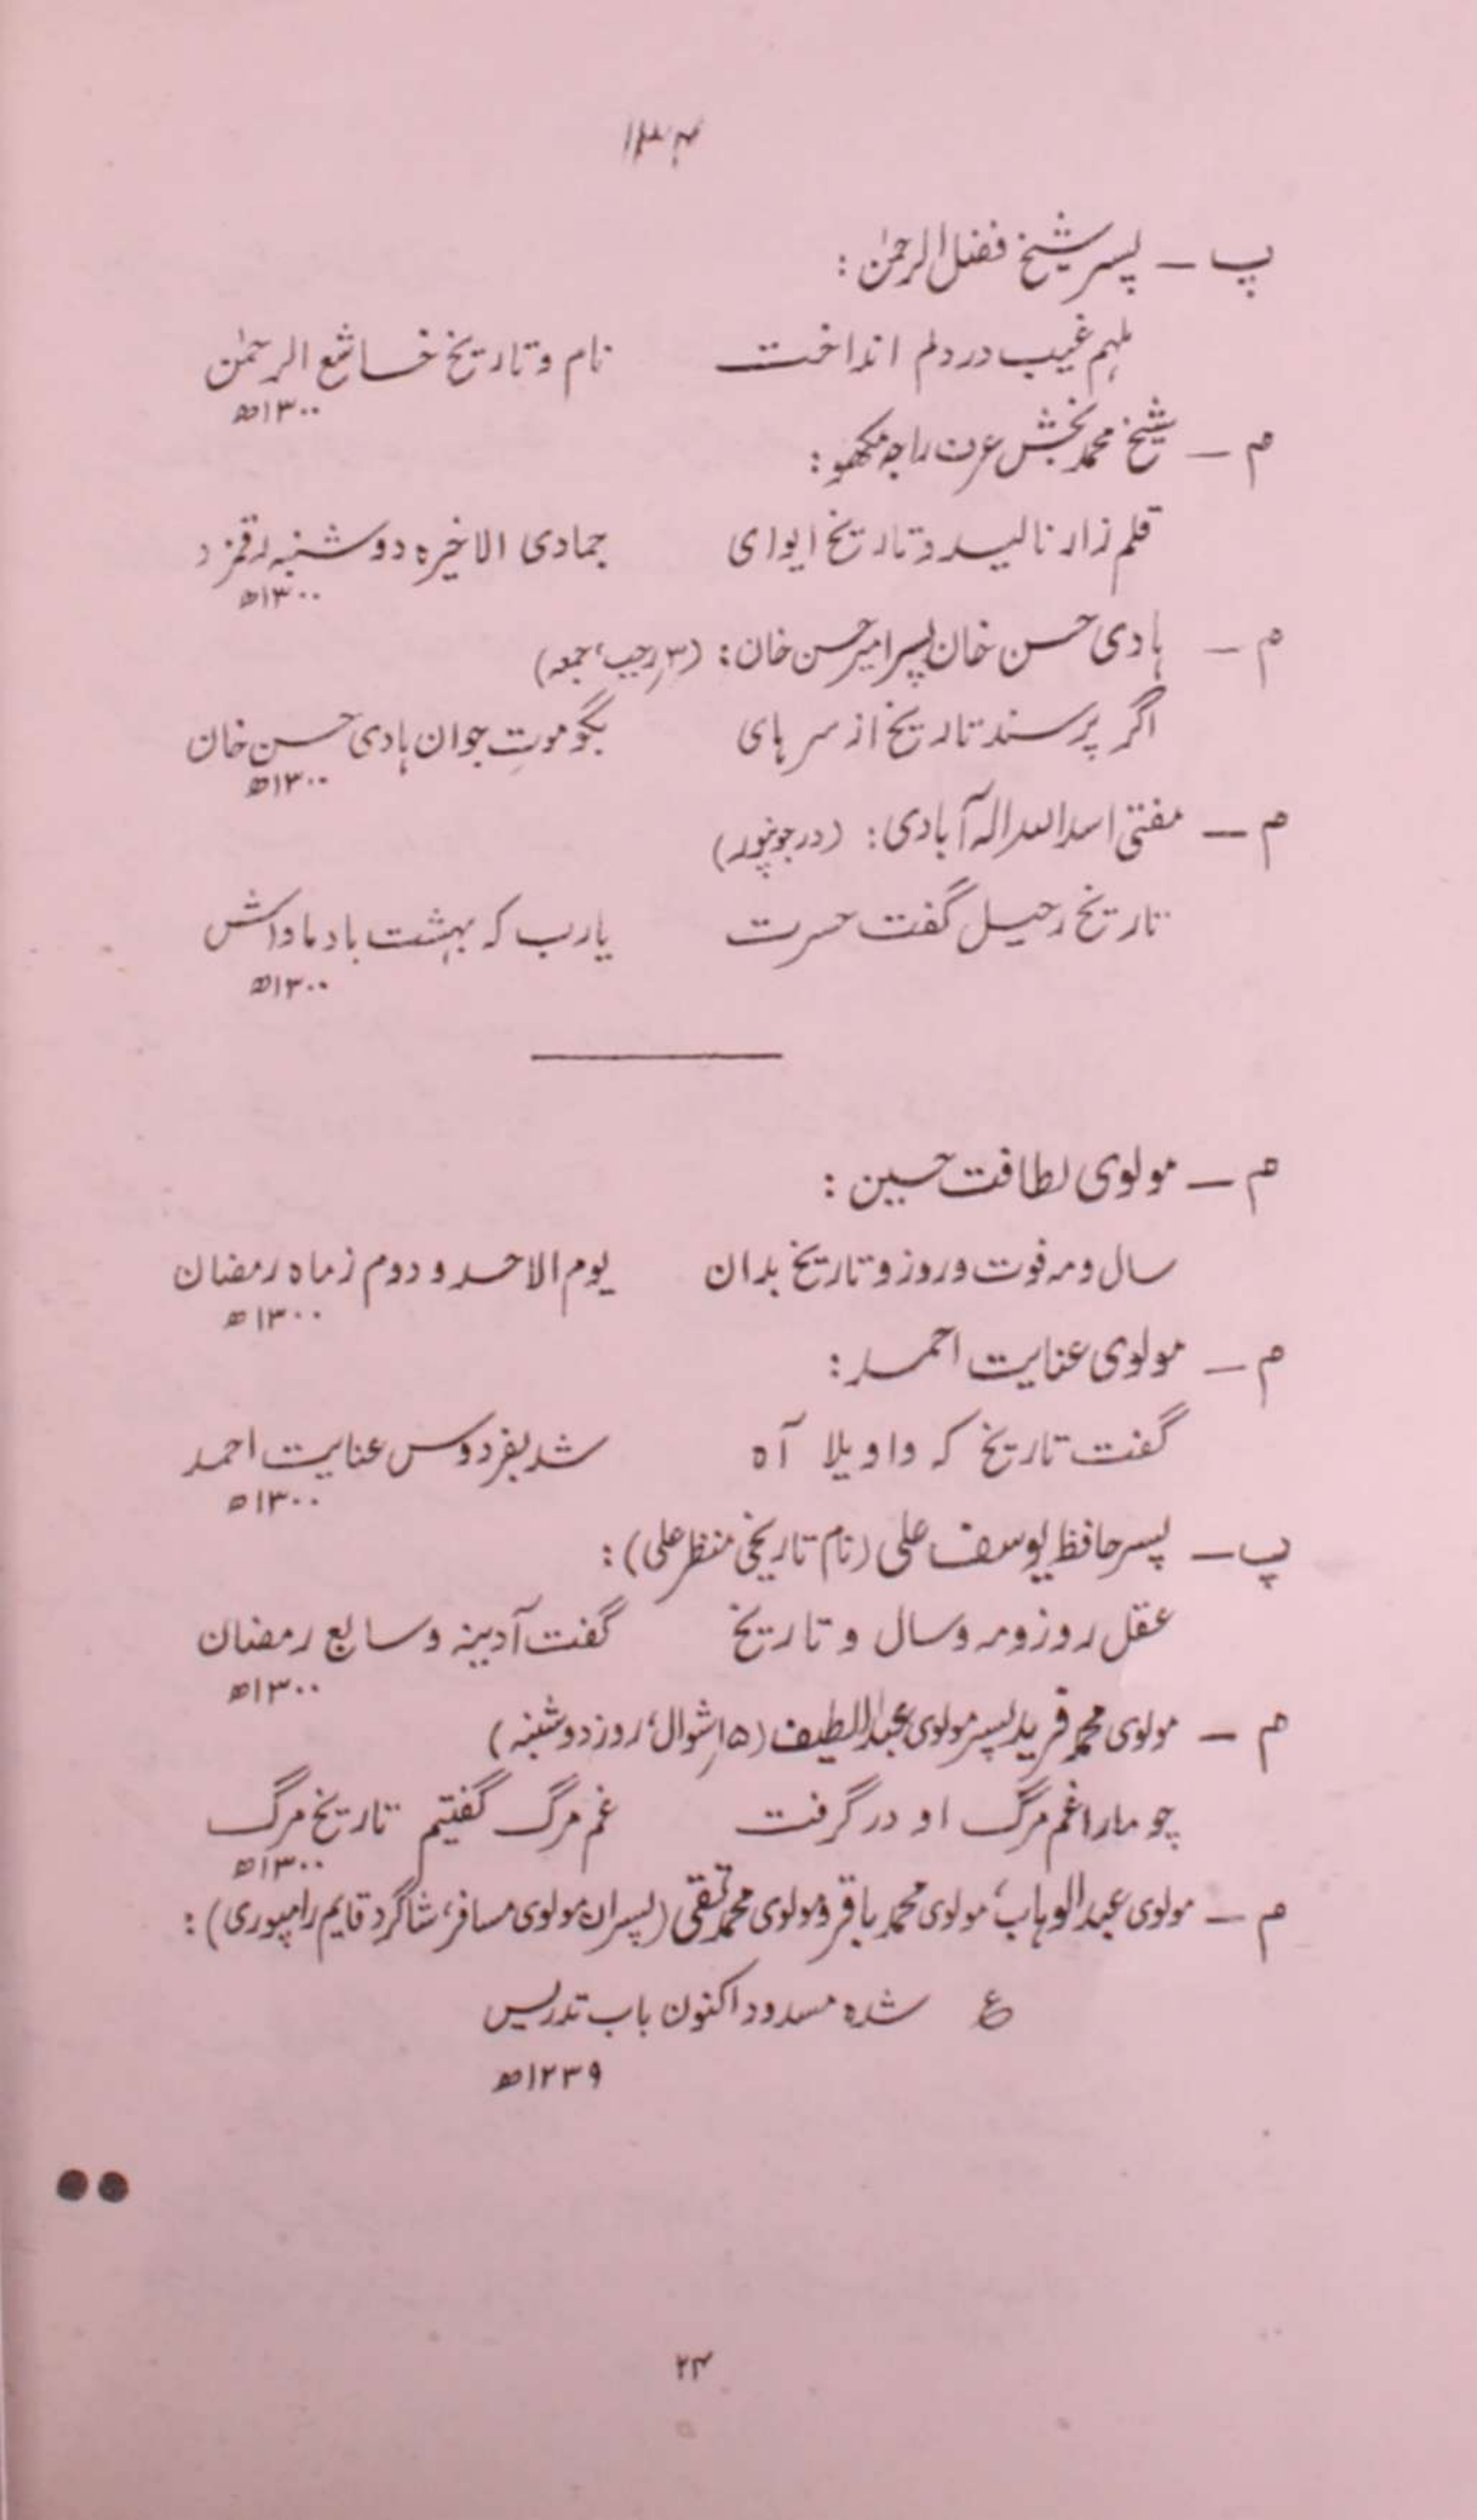 ۱۳۴
پ ـ پسر شیخ فضل الرحمٰن :
ملہم غیب در دلم انداخت نام و تاریخ خاشع الرحمٰن
۱۳۰۰ھ
م ـ شیخ محمد بخش عرف راجہ مکھو :
قلم زار نالید و تاریخ ایوای جمادی الاخیرہ دوشنبہ رقمزد
۱۳۰۰ھ
م ـ ہادی حسن خان پسر امیر حسن خان : (۳ رجب، جمعہ)
اگر پرسند تاریخ از سر ہای بگو موتِ جوان ہادی حسن خان
۱۳۰۰ھ
م ـ مفتی اسد اللہ الہ آبادی : (در جونپور)
تاریخ رحیل گفت حسرت یارب کہ بہشت باد ماواش
۱۳۰۰ھ
م ـ مولوی لطافت حسین :
سال و مہ فوت و روز و تاریخ بدان یوم الاحد و دوم ز ماہ رمضان
۱۳۰۰ھ
م ـ مولوی عنایت احمد :
گفت تاریخ کہ واویلا آہ شد بفردوس عنایت احمد
۱۳۰۰ھ
پ ـ پسر حافظ یوسف علی (نام تاریخی منظر علی) :
عقل روز و مہ و سال و تاریخ گفت آدینہ و سابع رمضان
۱۳۰۰ھ
م ـ مولوی محمد فرید پسر مولوی عبداللطیف (۱۵ شوال، روز دوشنبہ)
چو مارا غم مرگ او در گرفت غم مرگ گفتیم تاریخ مرگ
۱۳۰۰ھ
م ـ مولوی عبدالوہاب، مولوی محمد باقر و مولوی محمد تقی (پسران مولوی مسافر، شاگرد قایم رامپوری) :
ع شدہ مسدود اکنون باب تدریس
۱۲۳۹ھ
۲۴